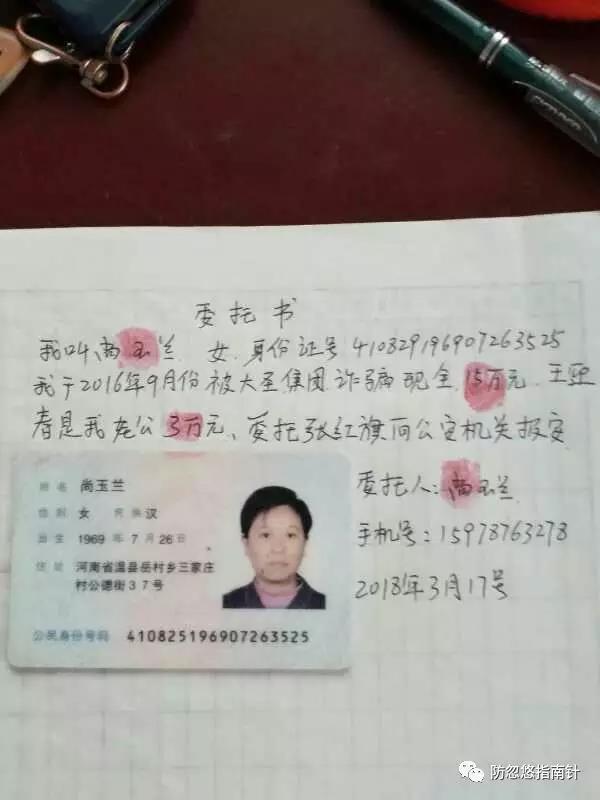 委托书
我叫尚玉兰 女 身份证号 410829196907263525
我于2016年9月份被大圣集团诈骗现金15万元 王
春是我老公3万元、委托张红旗向公安机关报案
委托人:尚玉兰
手机号:15978763278
2018年3月17号
姓名 尚玉兰
性别 女 民族 汉
出生 1969 年 7 月 26 日
住址 河南省温县岳村乡三家庄
村公德街37号
公民身份号码 410825196907263525
防忽悠指南针